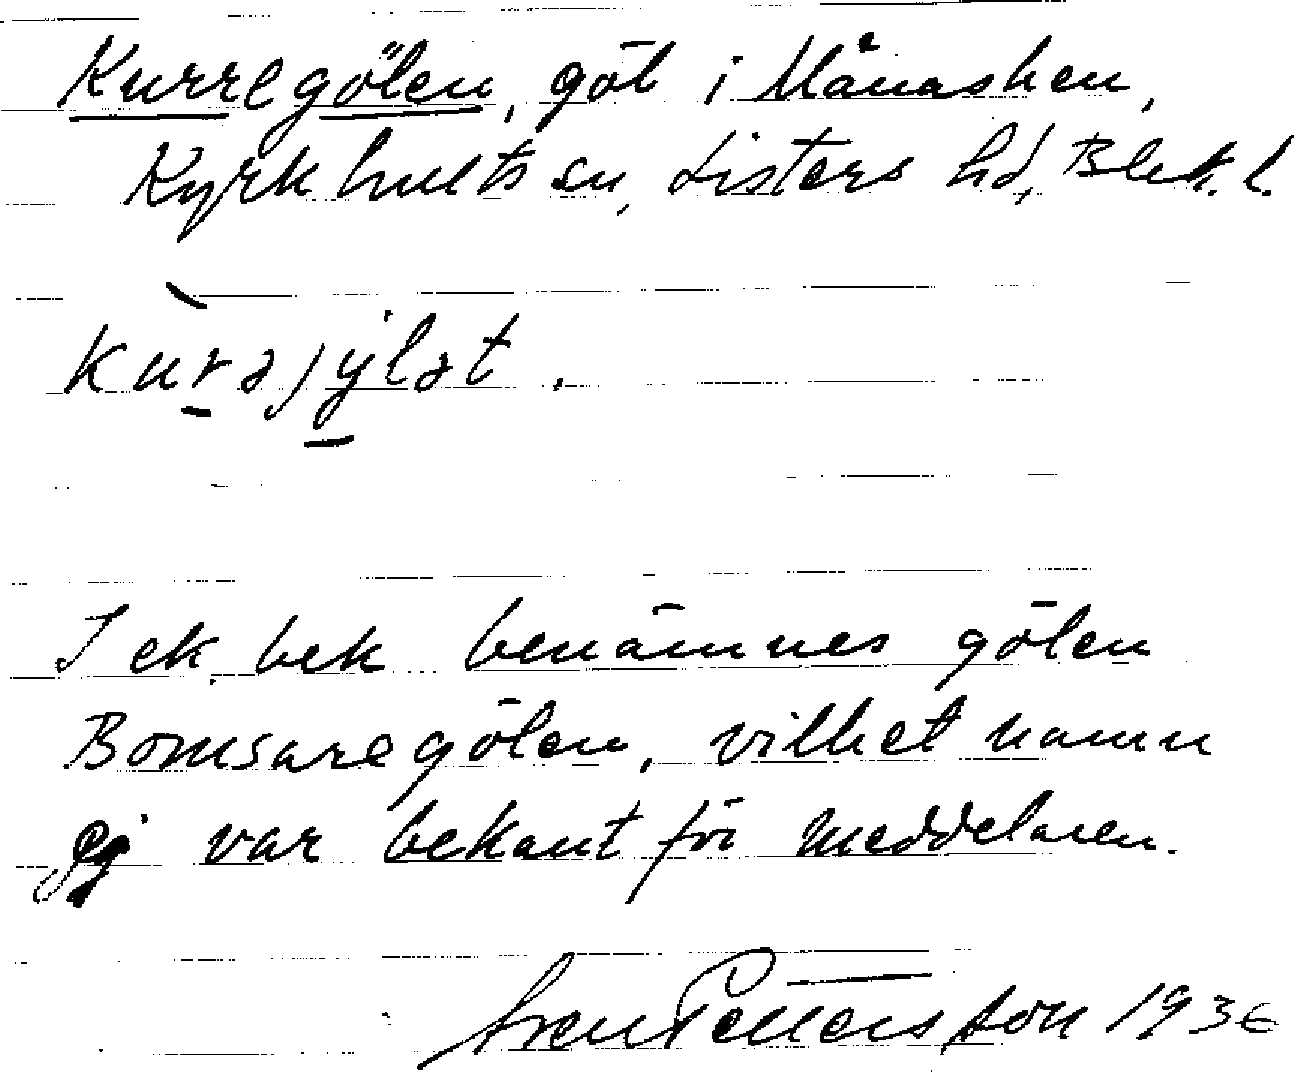 Kurregölen, göl i Månasken,
Kyrkhults sn, Listers hd, Blek. l.
kurəjylət.
I ek. bek benämnes gölen
Bomsaregölen, vilket namn
ej var bekant för meddelaren.
Sven Pettersson 1936